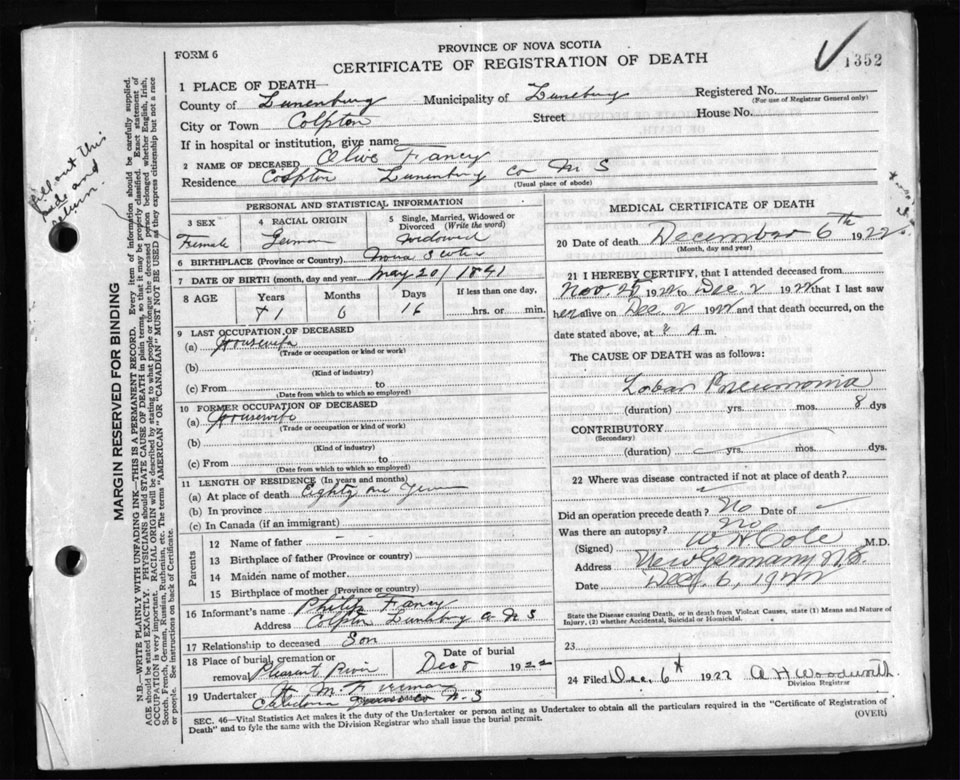 PROVINCE OF NOVA SCOTIA
FORM 6
CERTIFICATE OF REGISTRATION OF DEATH
1352
1 PLACE OF DEATH—
County of Lunenburg Municipality of Lunenburg Registered No.
(For use of Registrar General only)
City or Town Colpton Street House No.
If in hospital or institution, give name
2 NAME OF DECEASED Olive Fancy
Residence Colpton Lunenburg Co N S
(Usual place of abode)
PERSONAL AND STATISTICAL INFORMATION
3 SEX
Female
4 RACIAL ORIGIN
German
5 Single, Married, Widowed or Divorced (Write the word)
Widowed
6 BIRTHPLACE (Province or Country) Nova Scotia
7 DATE OF BIRTH (month, day and year May 20/1841
8 AGE Years Months Days If less than one day,
81 6 16 hrs. or min.
9 LAST OCCUPATION OF DECEASED
(a) Housewife
(Trade or occupation or kind or work)
(b)
(Kind of industry)
(c) From to
(Date from which to which so employed)
10 FORMER OCCUPATION OF DECEASED
(a) Housewife
(Trade or occupation or kind of work)
(b)
(Kind of industry)
(c) From to
(Date from which to which so employed)
11 LENGTH OF RESIDENCE (In years and months)
(a) At place of death Eighty one Years
(b) In province
(c) In Canada (if an immigrant)
Parents
12 Name of father
13 Birthplace of father (Province or country)
14 Maiden name of mother
15 Birthplace of mother (Province or country)
16 Informant's name Philip Fancy
Address Colpton Lunenburg Co N S
17 Relationship to deceased Son
18 Place of burial, cremation or removal Pleasant River
Date of burial
Dec 8 1922
19 Undertaker
Caledonia N.S
MEDICAL CERTIFICATE OF DEATH
20 Date of death December 6th 1922
(Month, day and year)
21 I HEREBY CERTIFY, that I attended deceased from
Nov. 1922 to Dec 2 1922 that I last saw
her alive on Dec. 2 1922 and that death occurred, on the
date stated above, at A m.
The CAUSE OF DEATH was as follows:
Lobar Pneumonia
(duration) yrs. mos. 8 dys
CONTRIBUTORY
(Secondary)
(duration) yrs. mos. dys.
22 Where was disease contracted if not at place of death?
Did an operation precede death? No Date of
Was there an autopsy? No
(Signed) W H Cole M.D.
Address New Germany N.S.
Date Dec. 6, 1922
State the Disease causing Death, or in death from Violent Causes, state (1) Means and Nature of
Injury, (2) whether Accidental, Suicidal or Homicidal.
23
24 Filed Dec. 6th 1922 A H Woodworth
Division Registrar
SEC. 46—Vital Statistics Act makes it the duty of the Undertaker or person acting as Undertaker to obtain all the particulars required in the "Certificate of Registration of
Death" and to fyle the same with the Division Registrar who shall issue the burial permit.
(OVER)
MARGIN RESERVED FOR BINDING
N.B.—WRITE PLAINLY WITH UNFADING INK—THIS IS A PERMANENT RECORD. Every item of information should be carefully supplied.
AGE should be stated EXACTLY. PHYSICIANS should STATE CAUSE OF DEATH in plain terms, so that it may be properly classified. Exact statement of
OCCUPATION is very important. RACIAL ORIGIN will be described by stating to what people or tongue the deceased person belonged whether English, Irish,
Scotch, French, German, Russian, Ruthenian, etc. The terms "AMERICAN" OR "CANADIAN" MUST NOT BE USED as they express citizenship but not a race
or people. See instructions on back of Certificate.
Fill out this
side and
return.